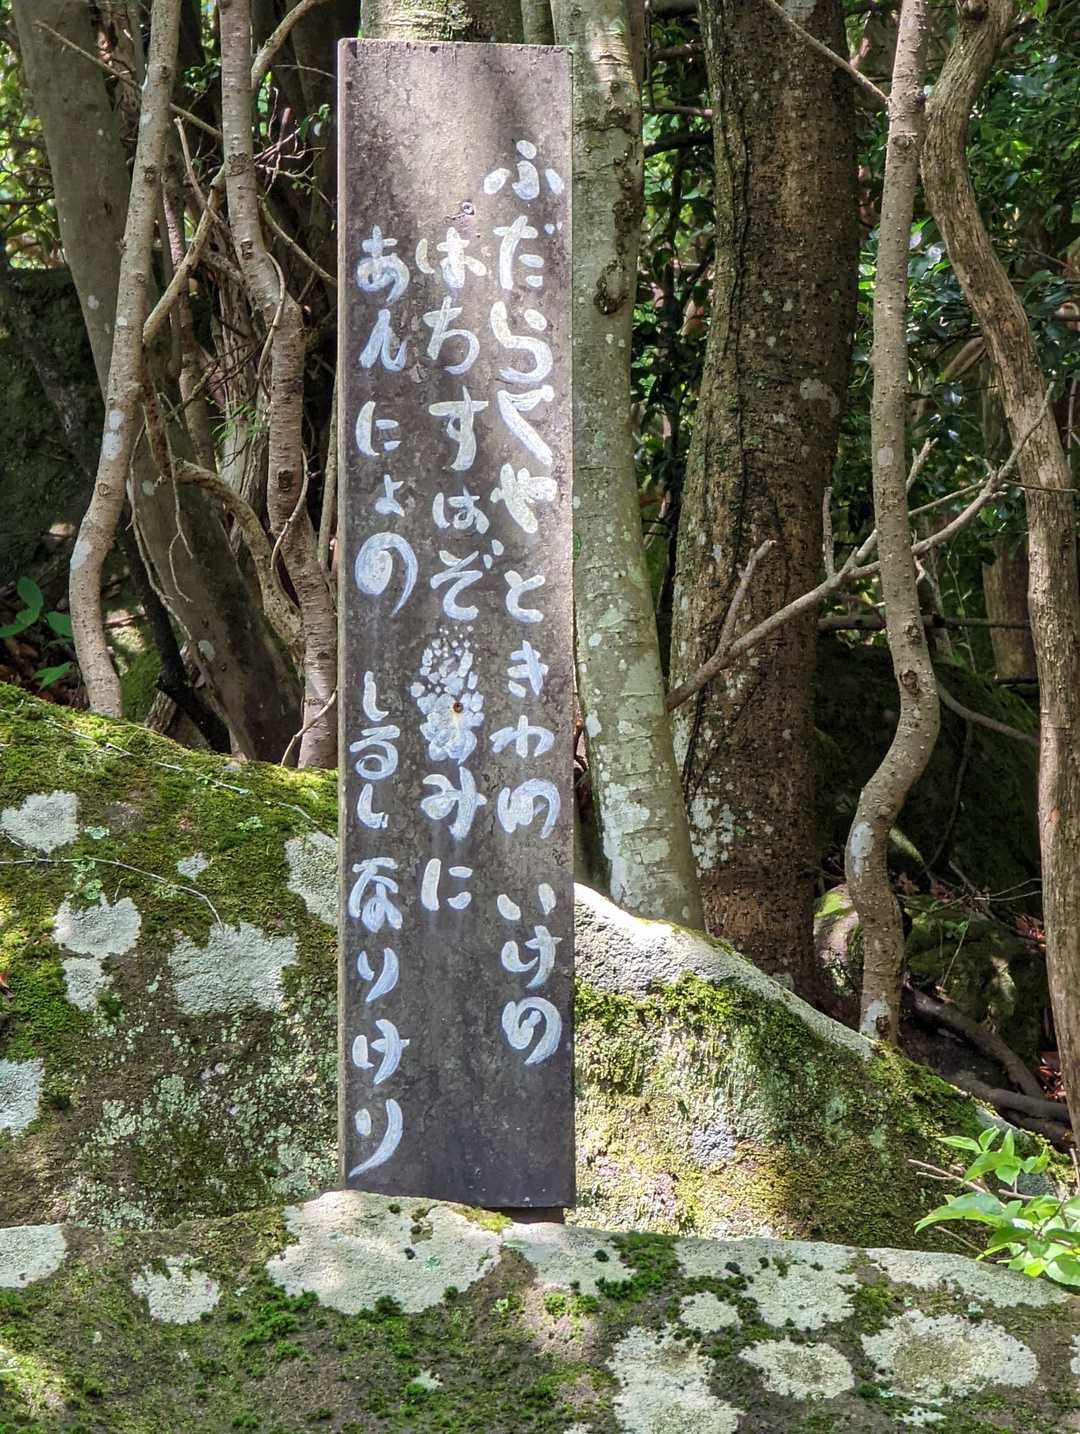 ふだらくや ときわの いけの
はちすはぞ みに
あんにょの しるしなりけり